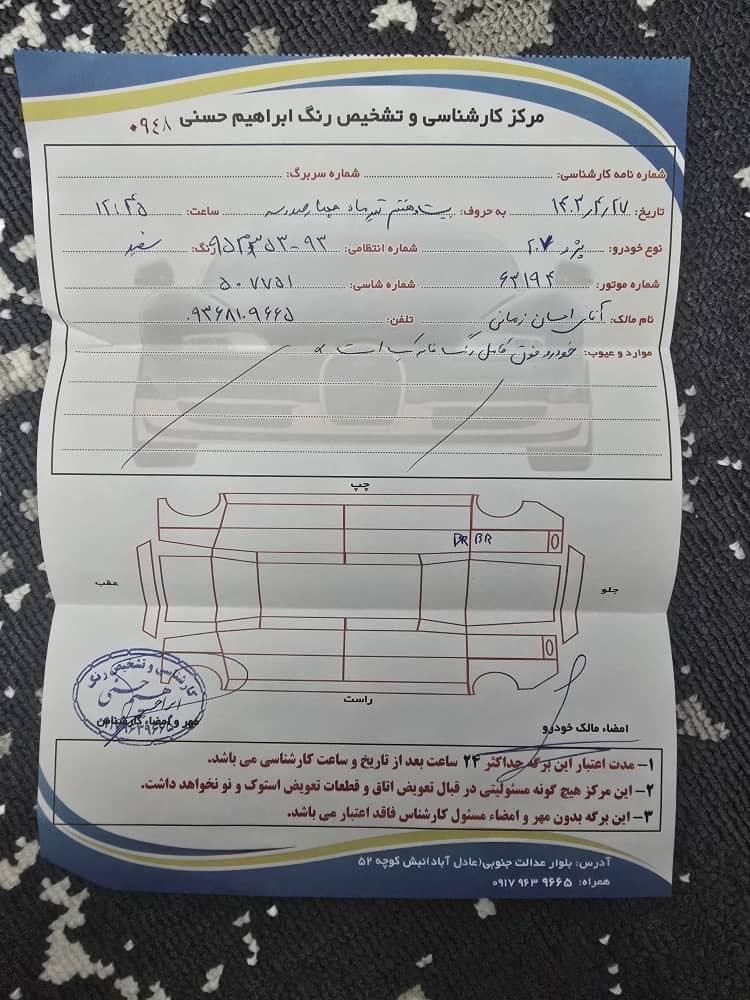 مرکز کارشناسی و تشخیص رنگ ابراهیم حسنی ۰۹۴۸
شماره نامه کارشناسی: شماره سربرگ:
تاریخ: ۱۴۰۳,۴,۲۷ به حروف: بیست و هفتم تیرماه چهارصد و سه ساعت: ۱۲:۴۵
نوع خودرو: پژو ۲۰۷ شماره انتظامی: ۹۳-۹۵۳ رنگ: سفید
شماره موتور: ۶۳۱۹۴ شماره شاسی: ۵۰۷۷۵۱
نام مالک: آقای احسان زمانی تلفن: ۰۹۳۶۸۱۰۹۶۶۵
موارد و عیوب: خودرو فوق کامل رنگ است
چپ
BR BR
عقب
جلو
راست
کارشناسی و تشخیص رنگ
ابراهیم حسنی
مهر و امضاء کارشناس
امضاء مالک خودرو
۱- مدت اعتبار این برگه حداکثر ۲۴ ساعت بعد از تاریخ و ساعت کارشناسی می باشد.
۲- این مرکز هیچ گونه مسئولیتی در قبال تعویض اتاق و قطعات تعویض استوک و نو نخواهد داشت.
۳- این برگه بدون مهر و امضاء مسئول کارشناس فاقد اعتبار می باشد.
آدرس: بلوار عدالت جنوبی(عادل آباد)نبش کوچه ۵۲
همراه: ۰۹۱۷ ۹۶۳ ۹۶۶۵